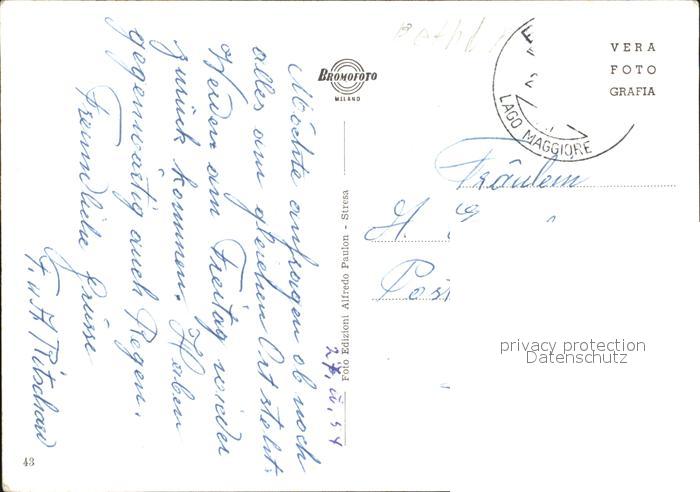 Möchte anfragen ob noch
alles am gleichen Ort steht.
Werden am Freitag wieder
zurück kommen. Haben
gegenwärtig auch Regen.
Freundliche Grüsse
F. u. H. Ritschard
BROMOFOTO
MILANO
Foto Edizioni Alfredo Paulon - Stresa
LAGO MAGGIORE
VERA
FOTO
GRAFIA
Fräulein
H.
privacy protection
Datenschutz
43